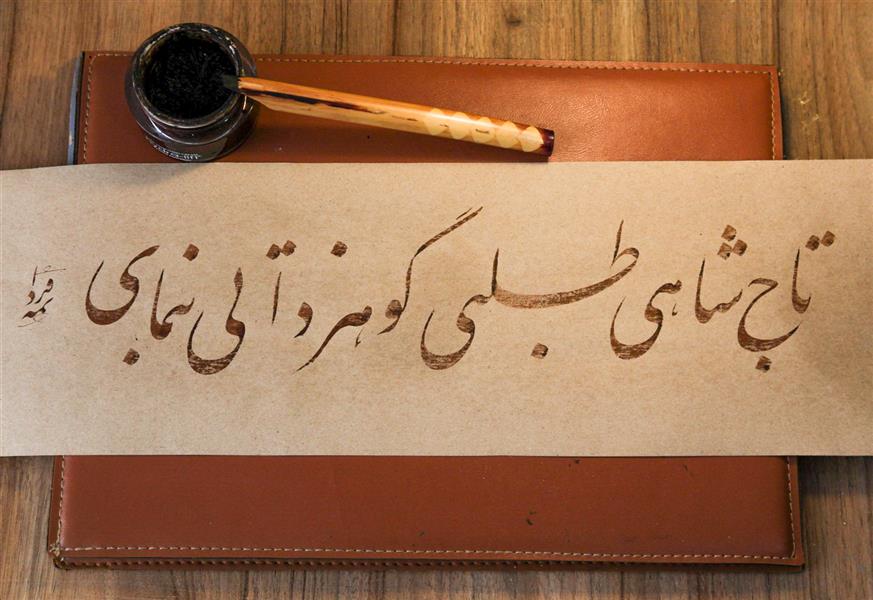 تاج شاهی طلبی گوهر ذاتی بنمای